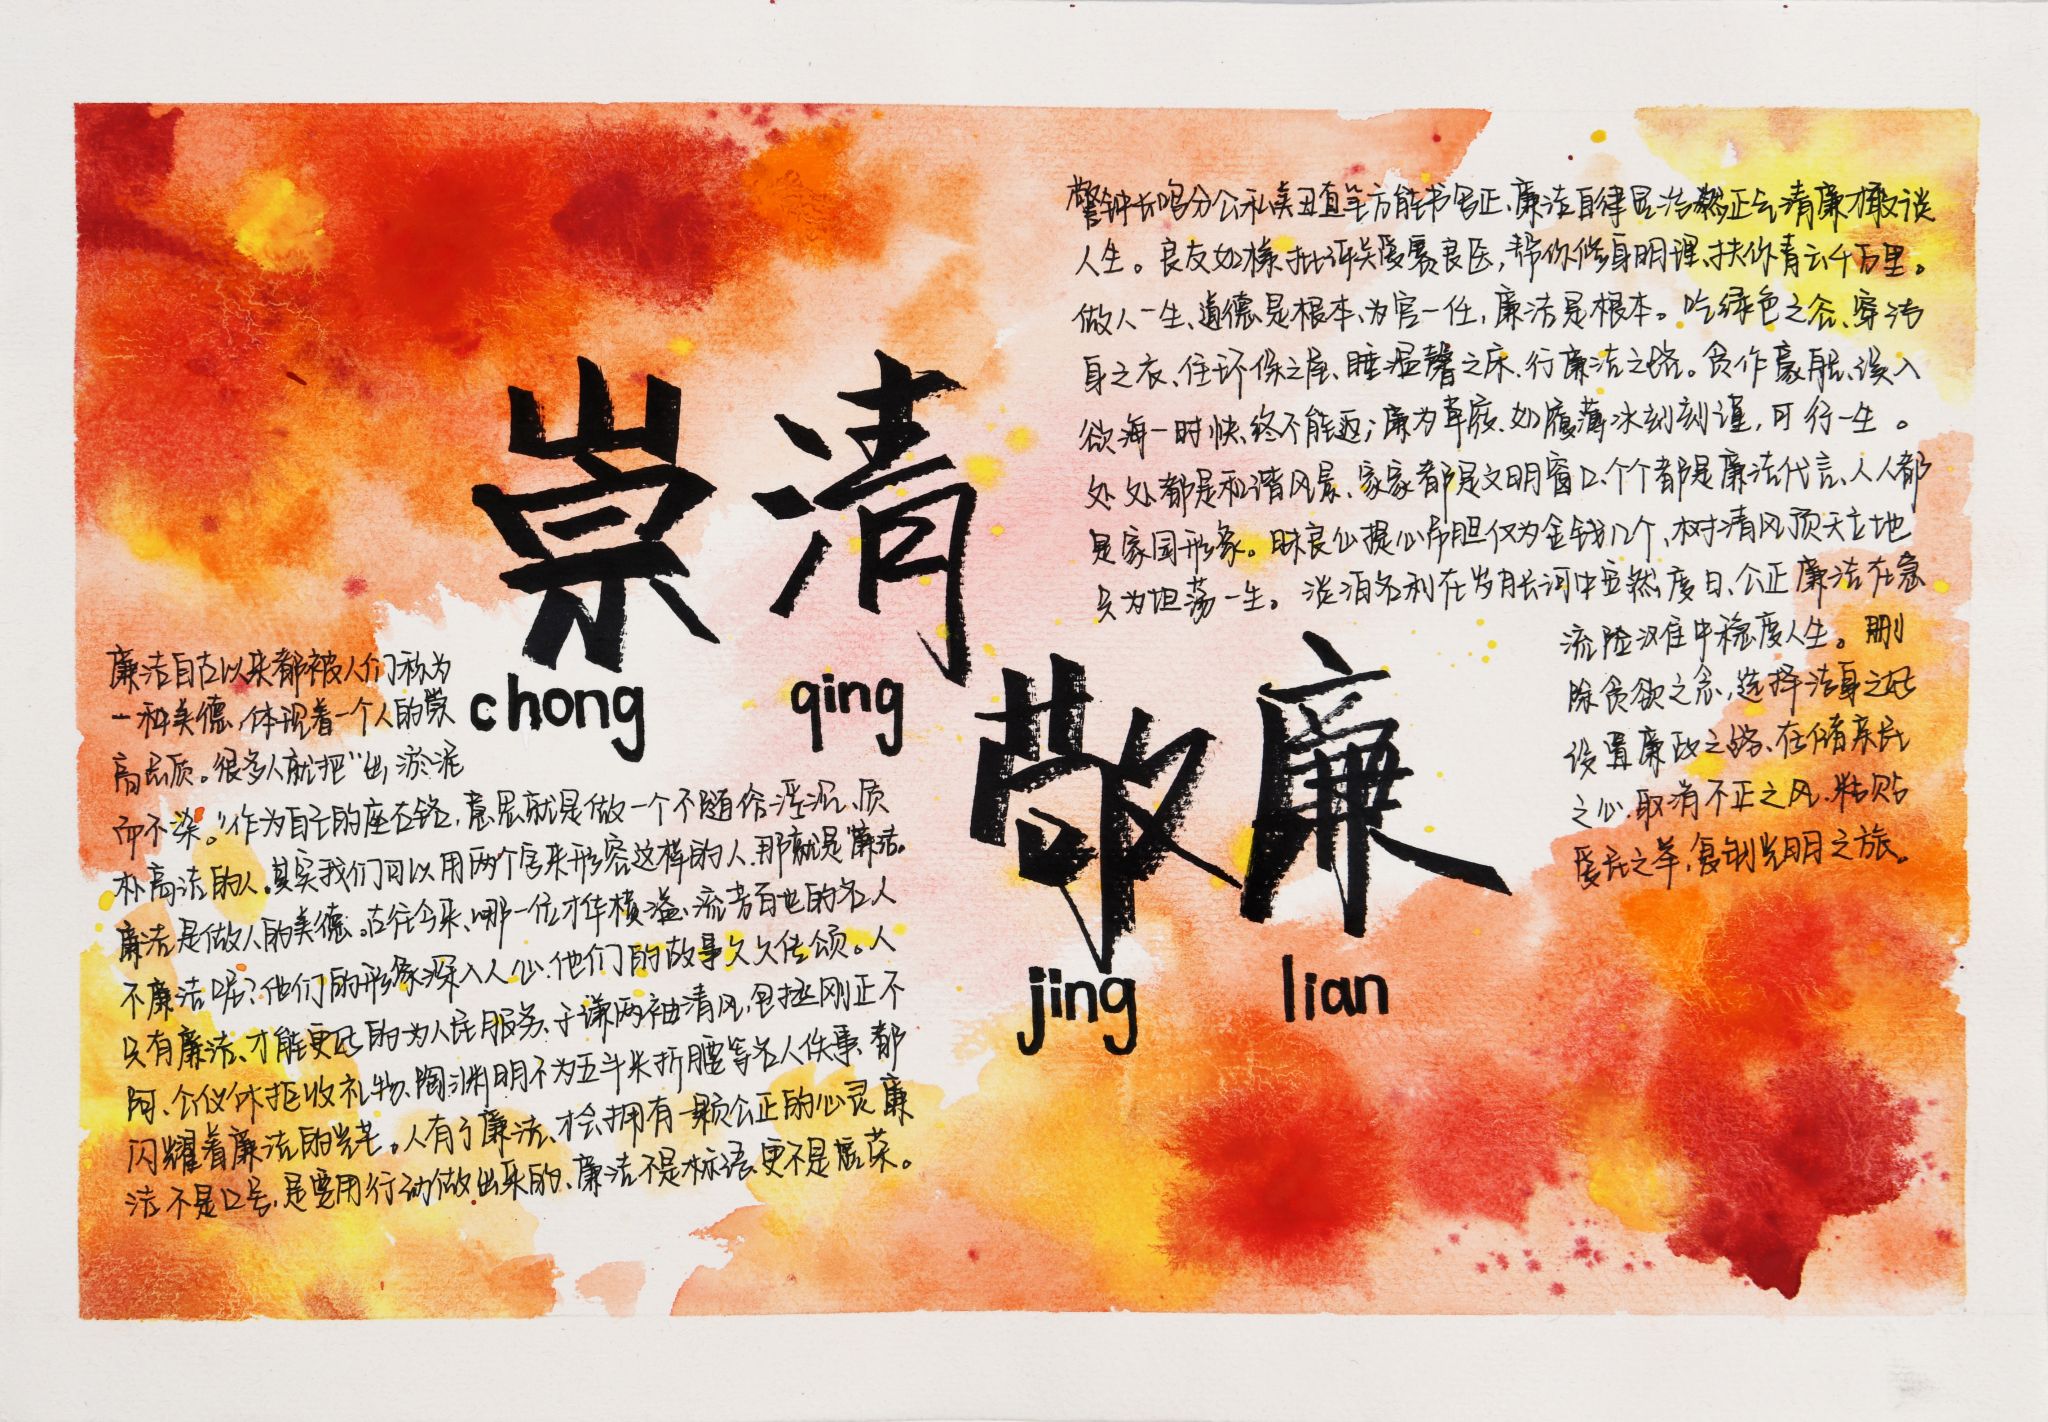 崇清
chong qing
敬廉
jing lian
警钟长鸣分公私卖丑直笔方能书写正、廉洁自律显浩然正气清廉才敢谈
人生。良友如 批评关爱赛良医,帮你修身明理、扶你青云千万里。
做人一生、道德是根本、为官一任,廉洁是根本。吃绿色之谷、穿洁
身之衣、住环保之屋、睡温馨之床、行廉洁之路。贪作豪 、误入
欲海一时快、终不能返;廉为草 、如履薄冰刻刻谨,可行一生。
处处都是和谐风景、家家都是文明窗口、个个都是廉洁代言、人人都
是家国形象。昧良心提心吊胆仅为金钱几个、树清风顶天立地
只为坦荡一生。淡泊名利在岁月长河中 然度日、公正廉洁在急
流险 中稳度人生。删
除贪欲之念,选择洁身之好
设置廉政之路、存储亲民
之心、取消不正之风、粘贴
爱民之举,复制光明之旅。
廉洁自古以来都被人们称为
一种美德,体现着一个人的崇
高品质。很多人就把“出淤泥
而不染。”作为自己的座右铭,意思就是做一个不随俗浮沉、质
朴高洁的人。其实我们可以用两个字来形容这样的人,那就是“廉洁。
廉洁是做人的美德。古往今来、哪一位才华横溢、流芳百世的名人
不廉洁呢?他们的形象深入人心、他们的故事久久传颂。人
只有廉洁、才能更好的为人民服务、于谦两袖清风,包拯刚正不
阿、公仪休拒收礼物、陶渊明不为五斗米折腰等名人佚事、都
闪耀着廉洁的光芒。人有了廉洁、才会拥有一颗公正的心灵廉
洁不是口号,是要用行动做出来的、廉洁不是标语、更不是虚荣。